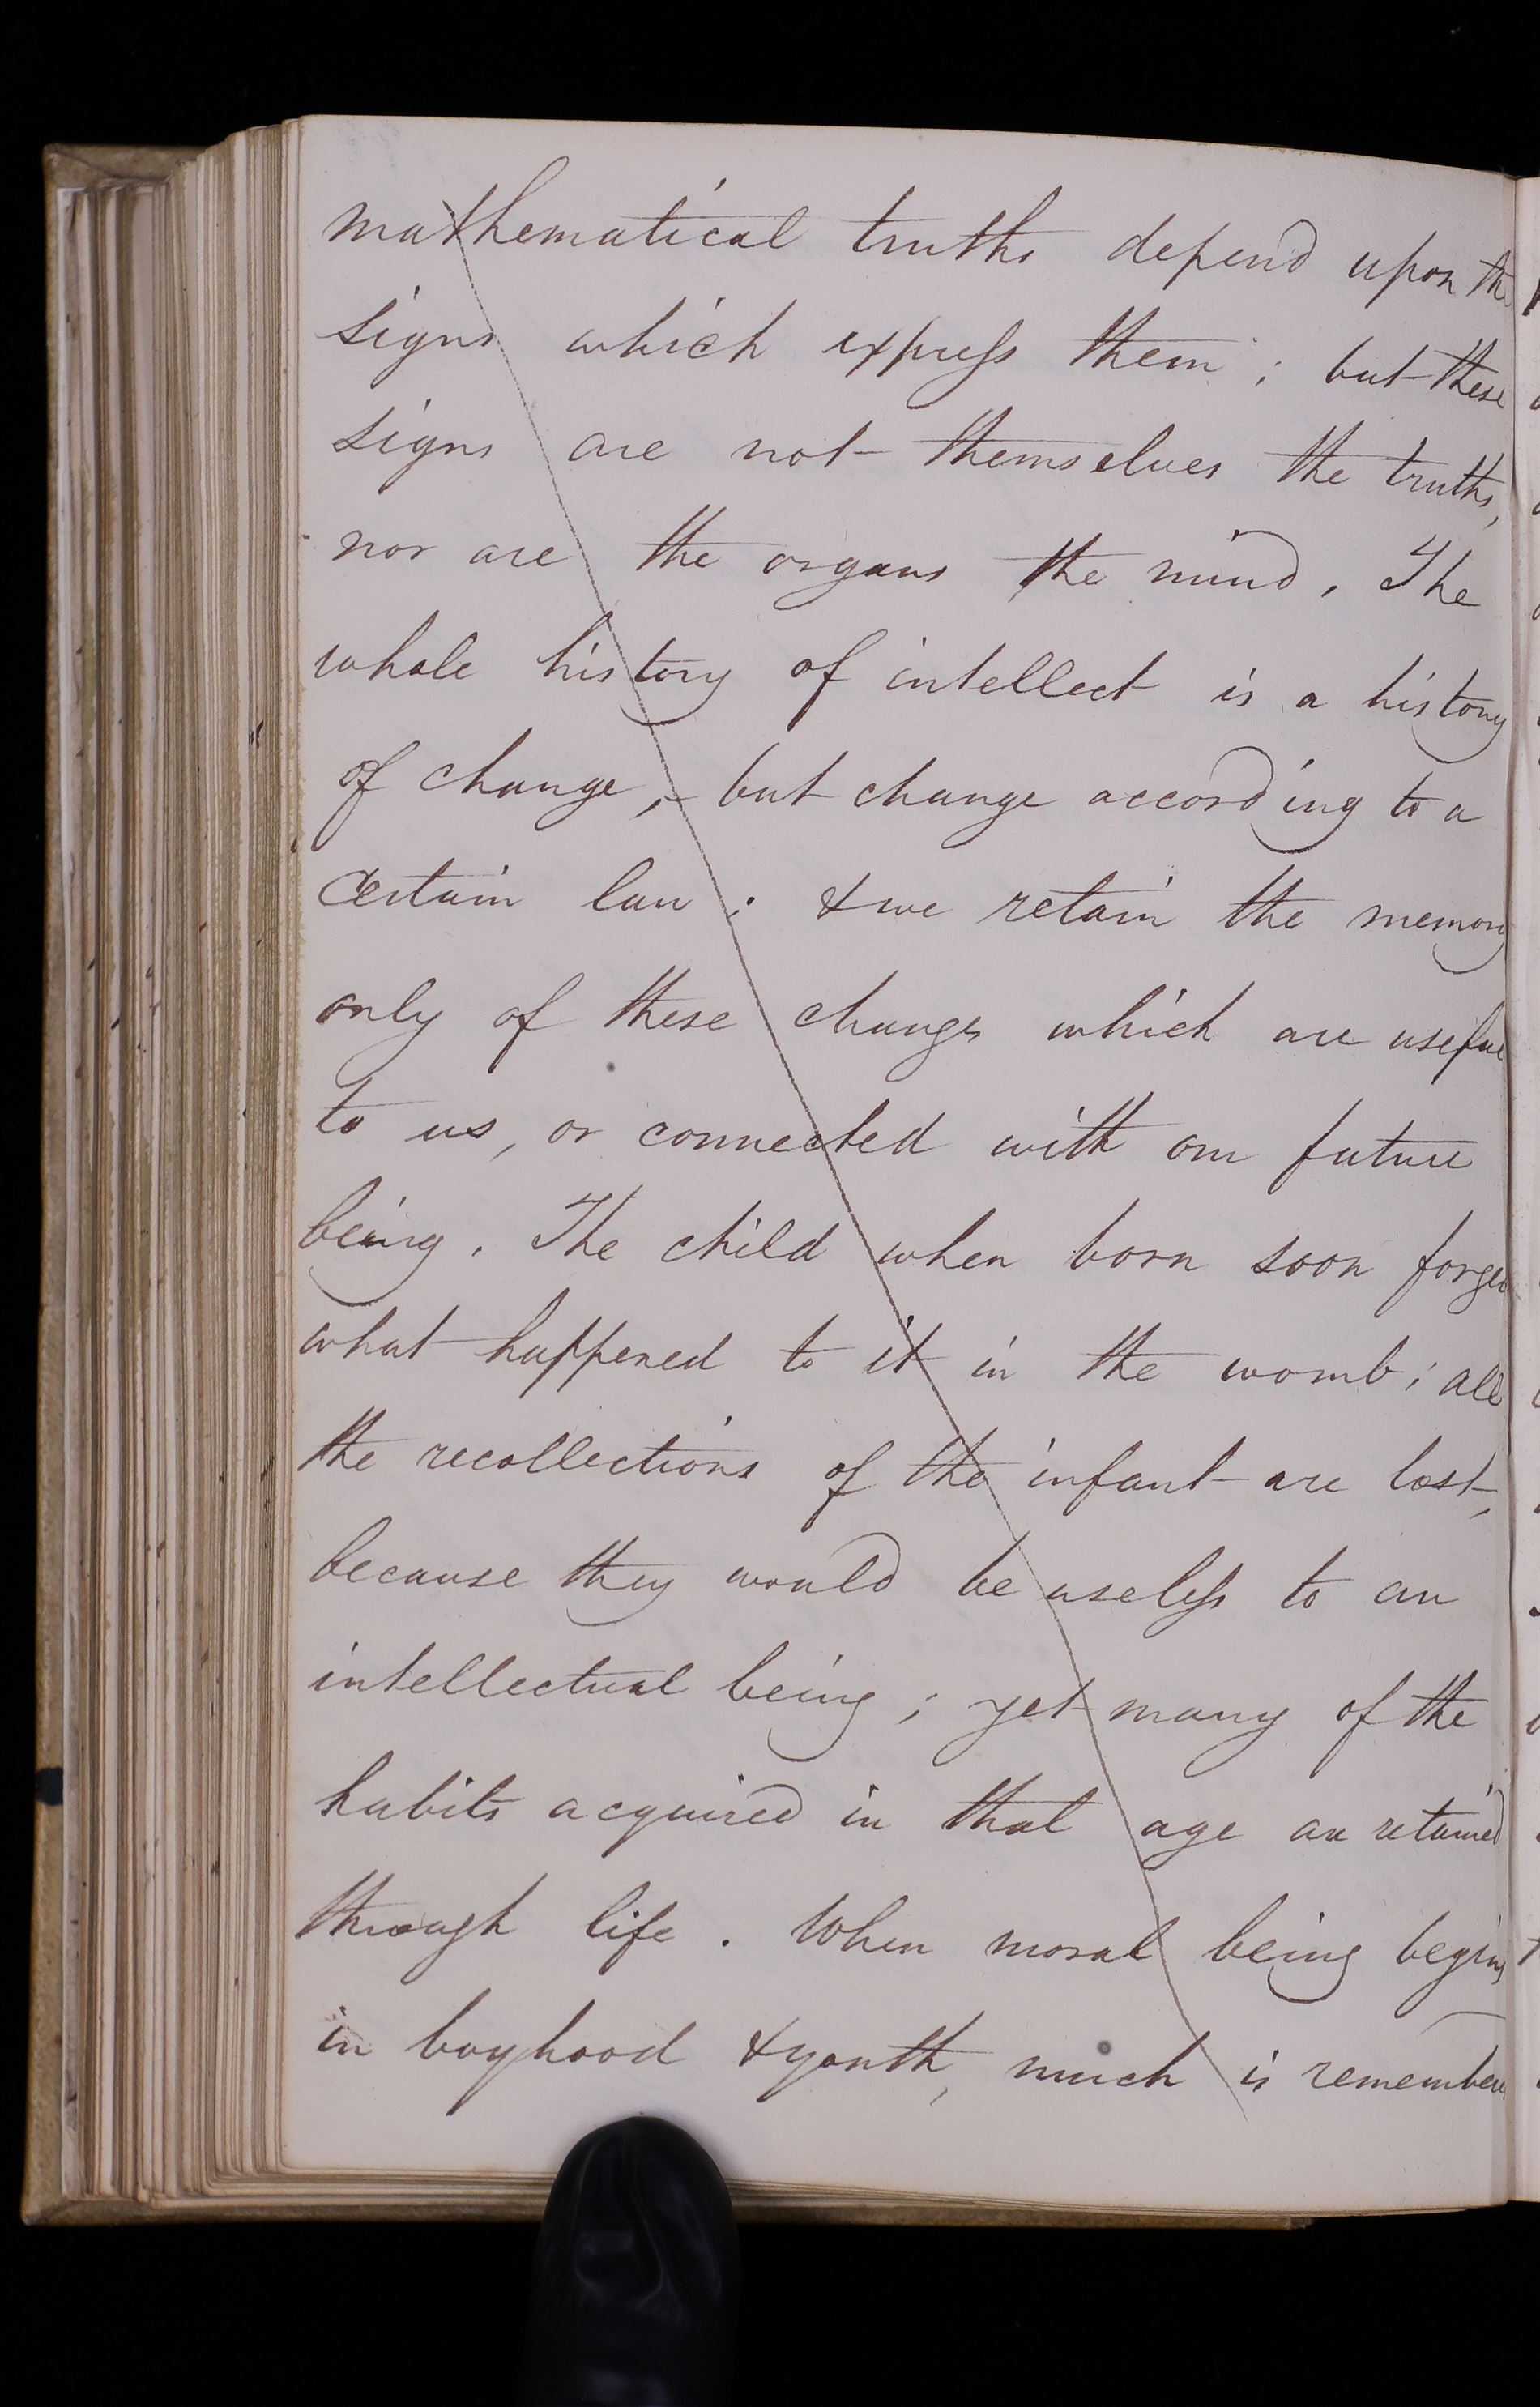 mathematical truths depend upon the
signs which express them; but these
signs are not themselves the truths,
nor are the organs the mind. The
whole history of intellect is a history
of change, but change according to a
certain law; & we retain the memory
only of these changes which are useful
to us, or connected with our future
being. The child when born soon forgets
what happened to it in the womb; all
the recollections of the infant are lost,
because they would be useless to an
intellectual being; yet many of the
habits acquired in that age are retained
through life. When moral being begins
in boyhood & youth, much is remembered